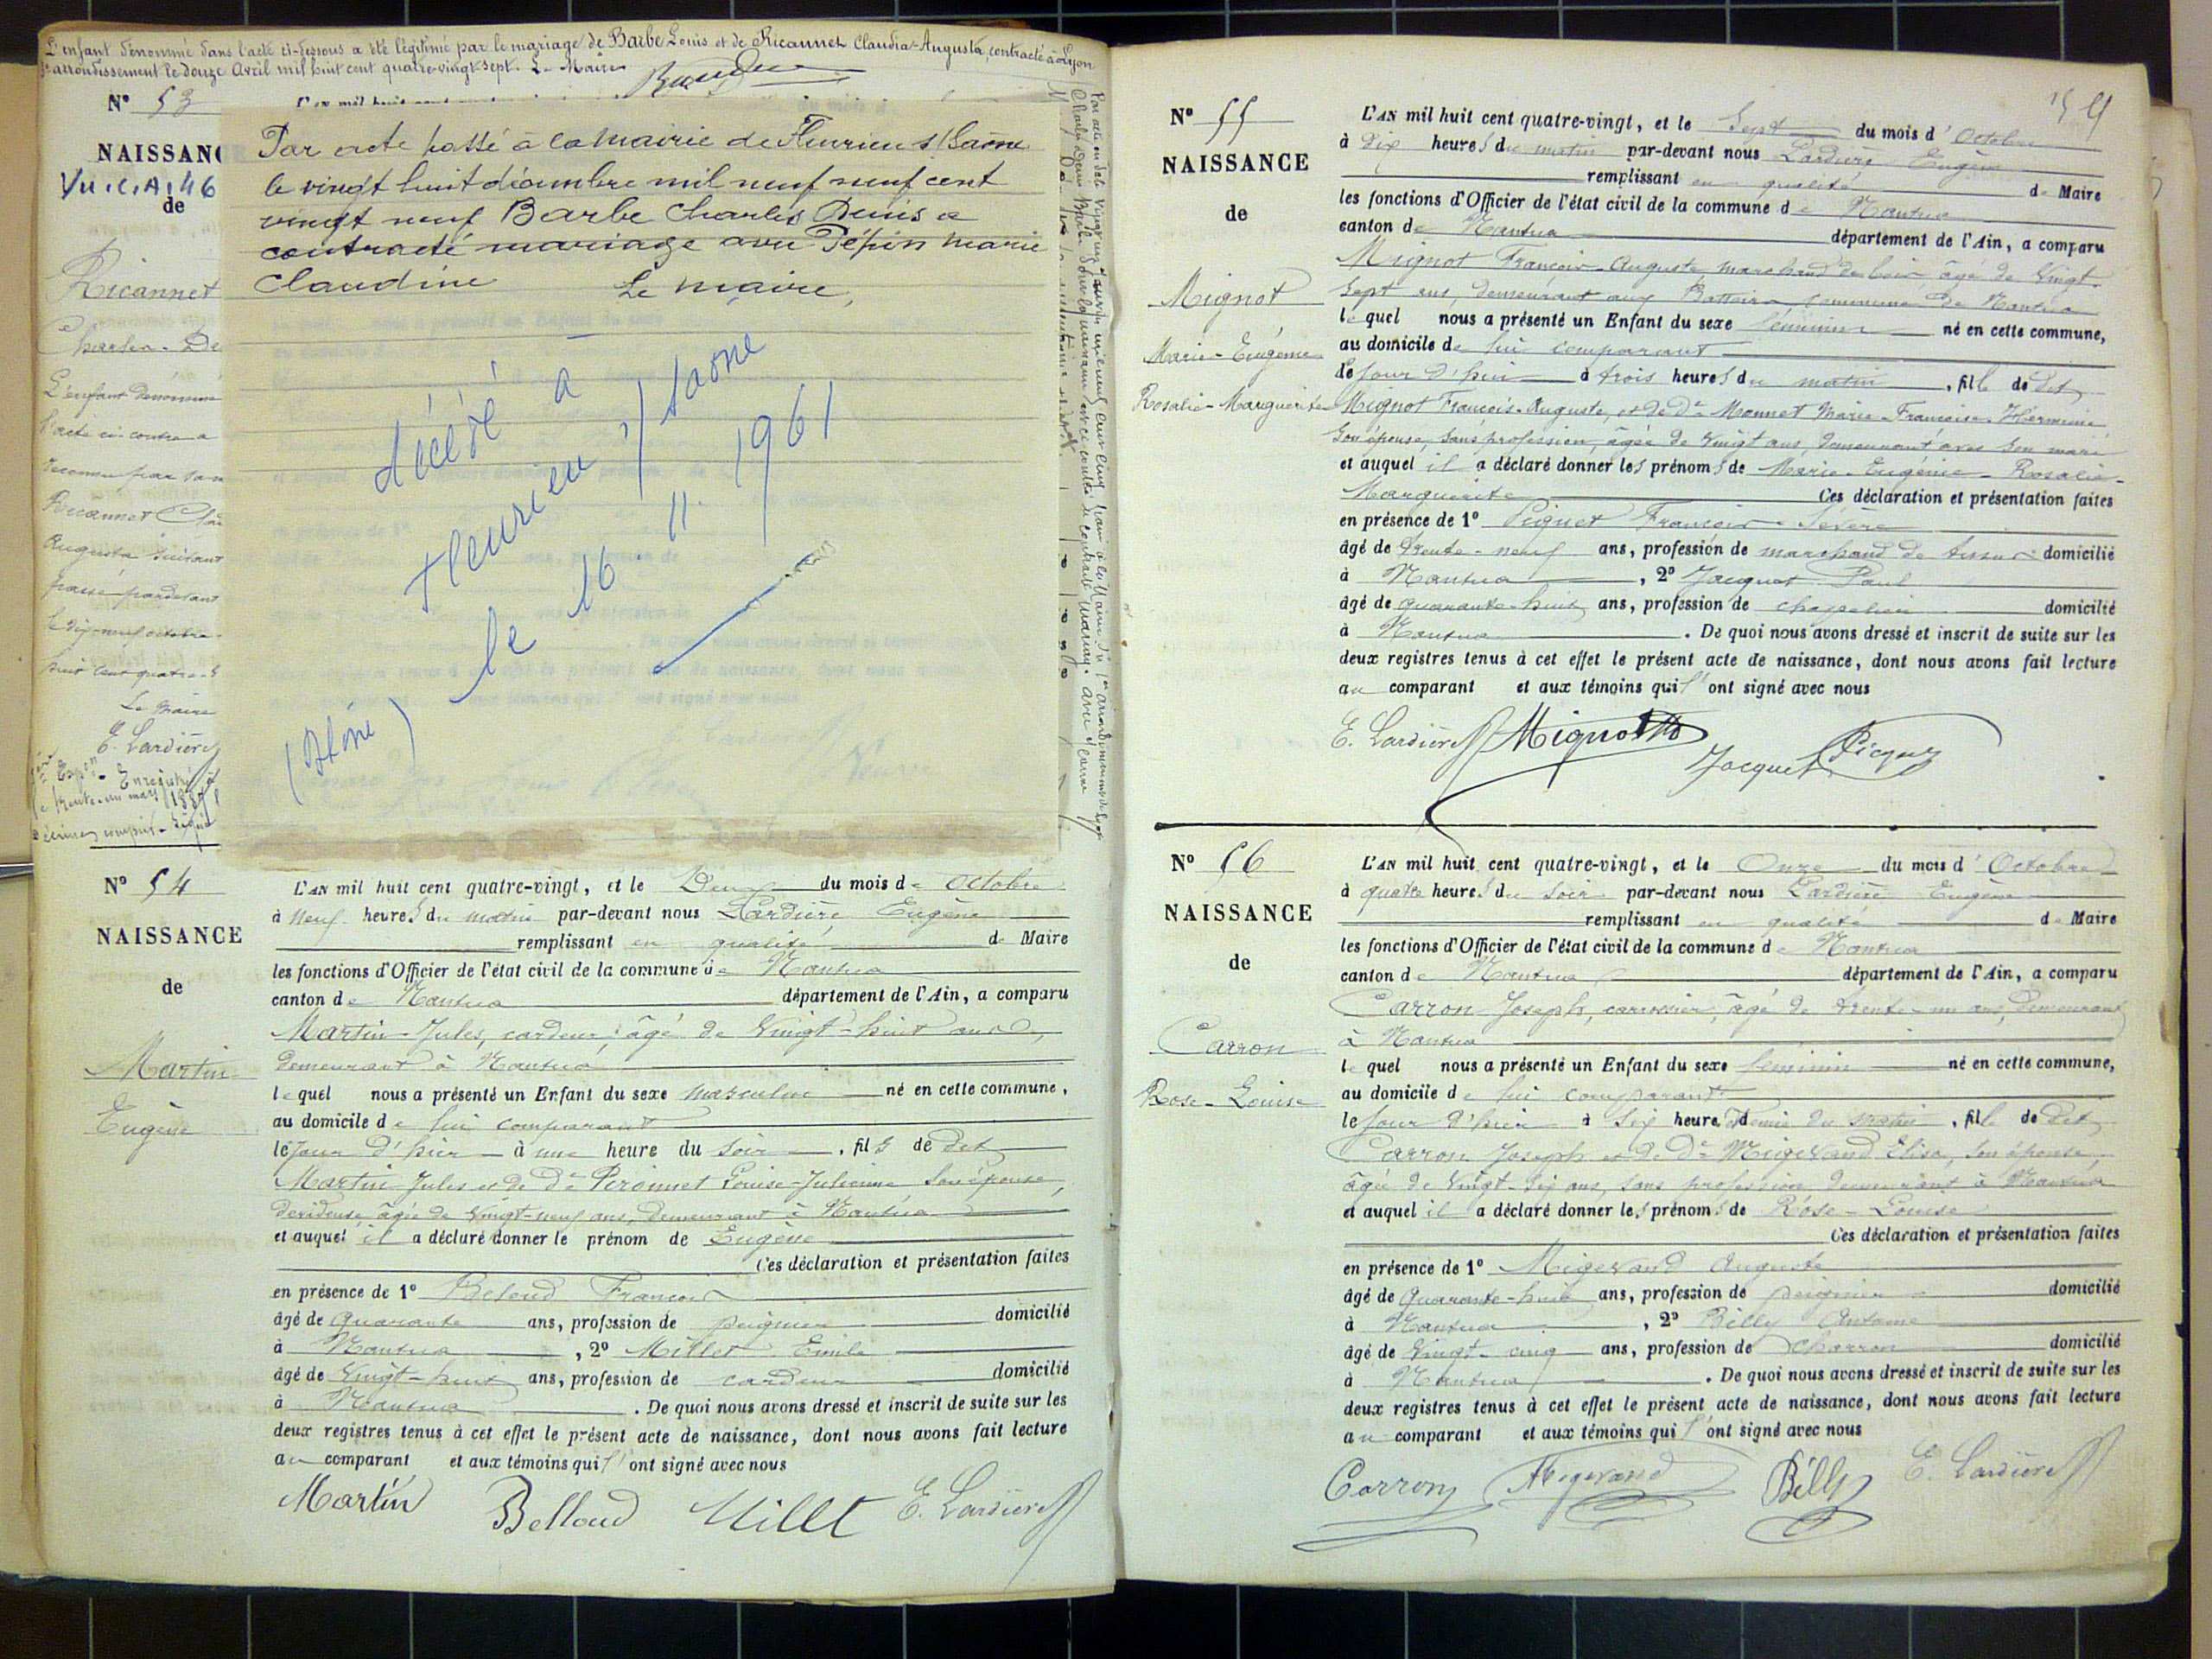 L'enfant dénommé dans l'acte ci-dessous a été légitimé par le mariage de Barbe Louis et de Ricannet Claudia-Augusta, contracté à Lyon
arrondissement le douze Avril mil huit cent quatre-vingt-sept. Le Maire
N° 53
NAISSAN
Vu.
de
Ricannet
Charles-De
L'enfant dénommé
l'acte ci-contre a
reconnu par sa m
Ricannet Cla
Augusta suivant
passé pardevant
le dix-neuf octobre
huit cent quatre-
Le Maire
E. Lardière
Enregistré
le trente-un mars
décimes compris
Par acte passé à la mairie de Fleurieu s/Saône
le vingt huit décembre mil neuf neuf cent
vingt neuf Barbe Charles Denis a
contracté mariage avec Pépin Marie
Claudine Le Maire,
décédé à
Fleurieu s/ Saone
le 16. 11. 1961
(Rhône)
N° 54
NAISSANCE
de
Martin
Eugène
L'AN mil huit cent quatre-vingt, et le Deux du mois de Octobre
à Neuf heures du matin par-devant nous Lardière Eugène
remplissant en qualité de Maire
les fonctions d'Officier de l'état civil de la commune de Nantua
canton de Nantua département de l'Ain, a comparu
Martin Jules, cardeur, âgé de Vingt-huit ans,
demeurant à Nantua
lequel nous a présenté un Enfant du sexe masculin né en cette commune,
au domicile de lui comparant
le jour d'hier à une heure du Soir, fils de dit
Martin Jules et de De Peronnet Louise-Julienne son épouse,
devideuse âgée de Vingt-neuf ans, demeurant à Nantua
et auquel il a déclaré donner le prénom de Eugène
Ces déclaration et présentation faites
en présence de 1° Beloud François
âgé de Quarante ans, profession de peignier domicilié
à Nantua, 2° Millet Emile
âgé de Vingt-huit ans, profession de cardeur domicilié
à Nantua. De quoi nous avons dressé et inscrit de suite sur les
deux registres tenus à cet effet le présent acte de naissance, dont nous avons fait lecture
au comparant et aux témoins qui l'ont signé avec nous
Martin Belloud Millet E. Lardière
15
N° 55
NAISSANCE
de
Mignot
Marie-Eugénie
Rosalie-Marguerite
L'AN mil huit cent quatre-vingt, et le Sept du mois d'Octobre
à Dix heures du matin par-devant nous Lardière Eugène
remplissant en qualité de Maire
les fonctions d'Officier de l'état civil de la commune de Nantua
canton de Nantua département de l'Ain, a comparu
Mignot François-Auguste, marchand de bois, âgé de Vingt-
sept ans, demeurant aux Battoirs commune de Nantua
lequel nous a présenté un Enfant du sexe féminin né en cette commune,
au domicile de lui comparant
le jour d'hui à trois heures du matin, fille de dit
Mignot François-Auguste, et de De Monnet Marie-Françoise-Herminie
son épouse, sans profession, âgée de Vingt ans, demeurant avec son mari
et auquel il a déclaré donner les prénoms de Marie-Eugénie-Rosalie-
Marguerite Ces déclaration et présentation faites
en présence de 1° Piquet François-Sévère
âgé de Trente-neuf ans, profession de marchand de tissus domicilié
à Nantua, 2° Jacquet Paul
âgé de quarante-huit ans, profession de chapelier domicilié
à Nantua. De quoi nous avons dressé et inscrit de suite sur les
deux registres tenus à cet effet le présent acte de naissance, dont nous avons fait lecture
au comparant et aux témoins qui l'ont signé avec nous
E. Lardière Mignot Jacquet Picquet
N° 56
NAISSANCE
de
Carron
Rose-Louise
L'AN mil huit cent quatre-vingt, et le Onze du mois d'Octobre
à quatre heures du soir par-devant nous Lardière Eugène
remplissant en qualité de Maire
les fonctions d'Officier de l'état civil de la commune de Nantua
canton de Nantua département de l'Ain, a comparu
Carron Joseph, carrossier, âgé de trente-un ans, demeurant
à Nantua
lequel nous a présenté un Enfant du sexe féminin né en cette commune,
au domicile de lui comparant
le jour d'hier à Six heures et demie du matin, fille de dit
Carron Joseph et de De Migevand Elisa, son épouse,
âgée de Vingt-six ans, sans profession demeurant à Nantua
et auquel il a déclaré donner les prénoms de Rose-Louise
Ces déclaration et présentation faites
en présence de 1° Migevand Auguste
âgé de Quarante-huit ans, profession de peignier domicilié
à Nantua, 2° Billy Antoine
âgé de Vingt-cinq ans, profession de charron domicilié
à Nantua. De quoi nous avons dressé et inscrit de suite sur les
deux registres tenus à cet effet le présent acte de naissance, dont nous avons fait lecture
au comparant et aux témoins qui l'ont signé avec nous
Carron Megevand Billy E. Lardière